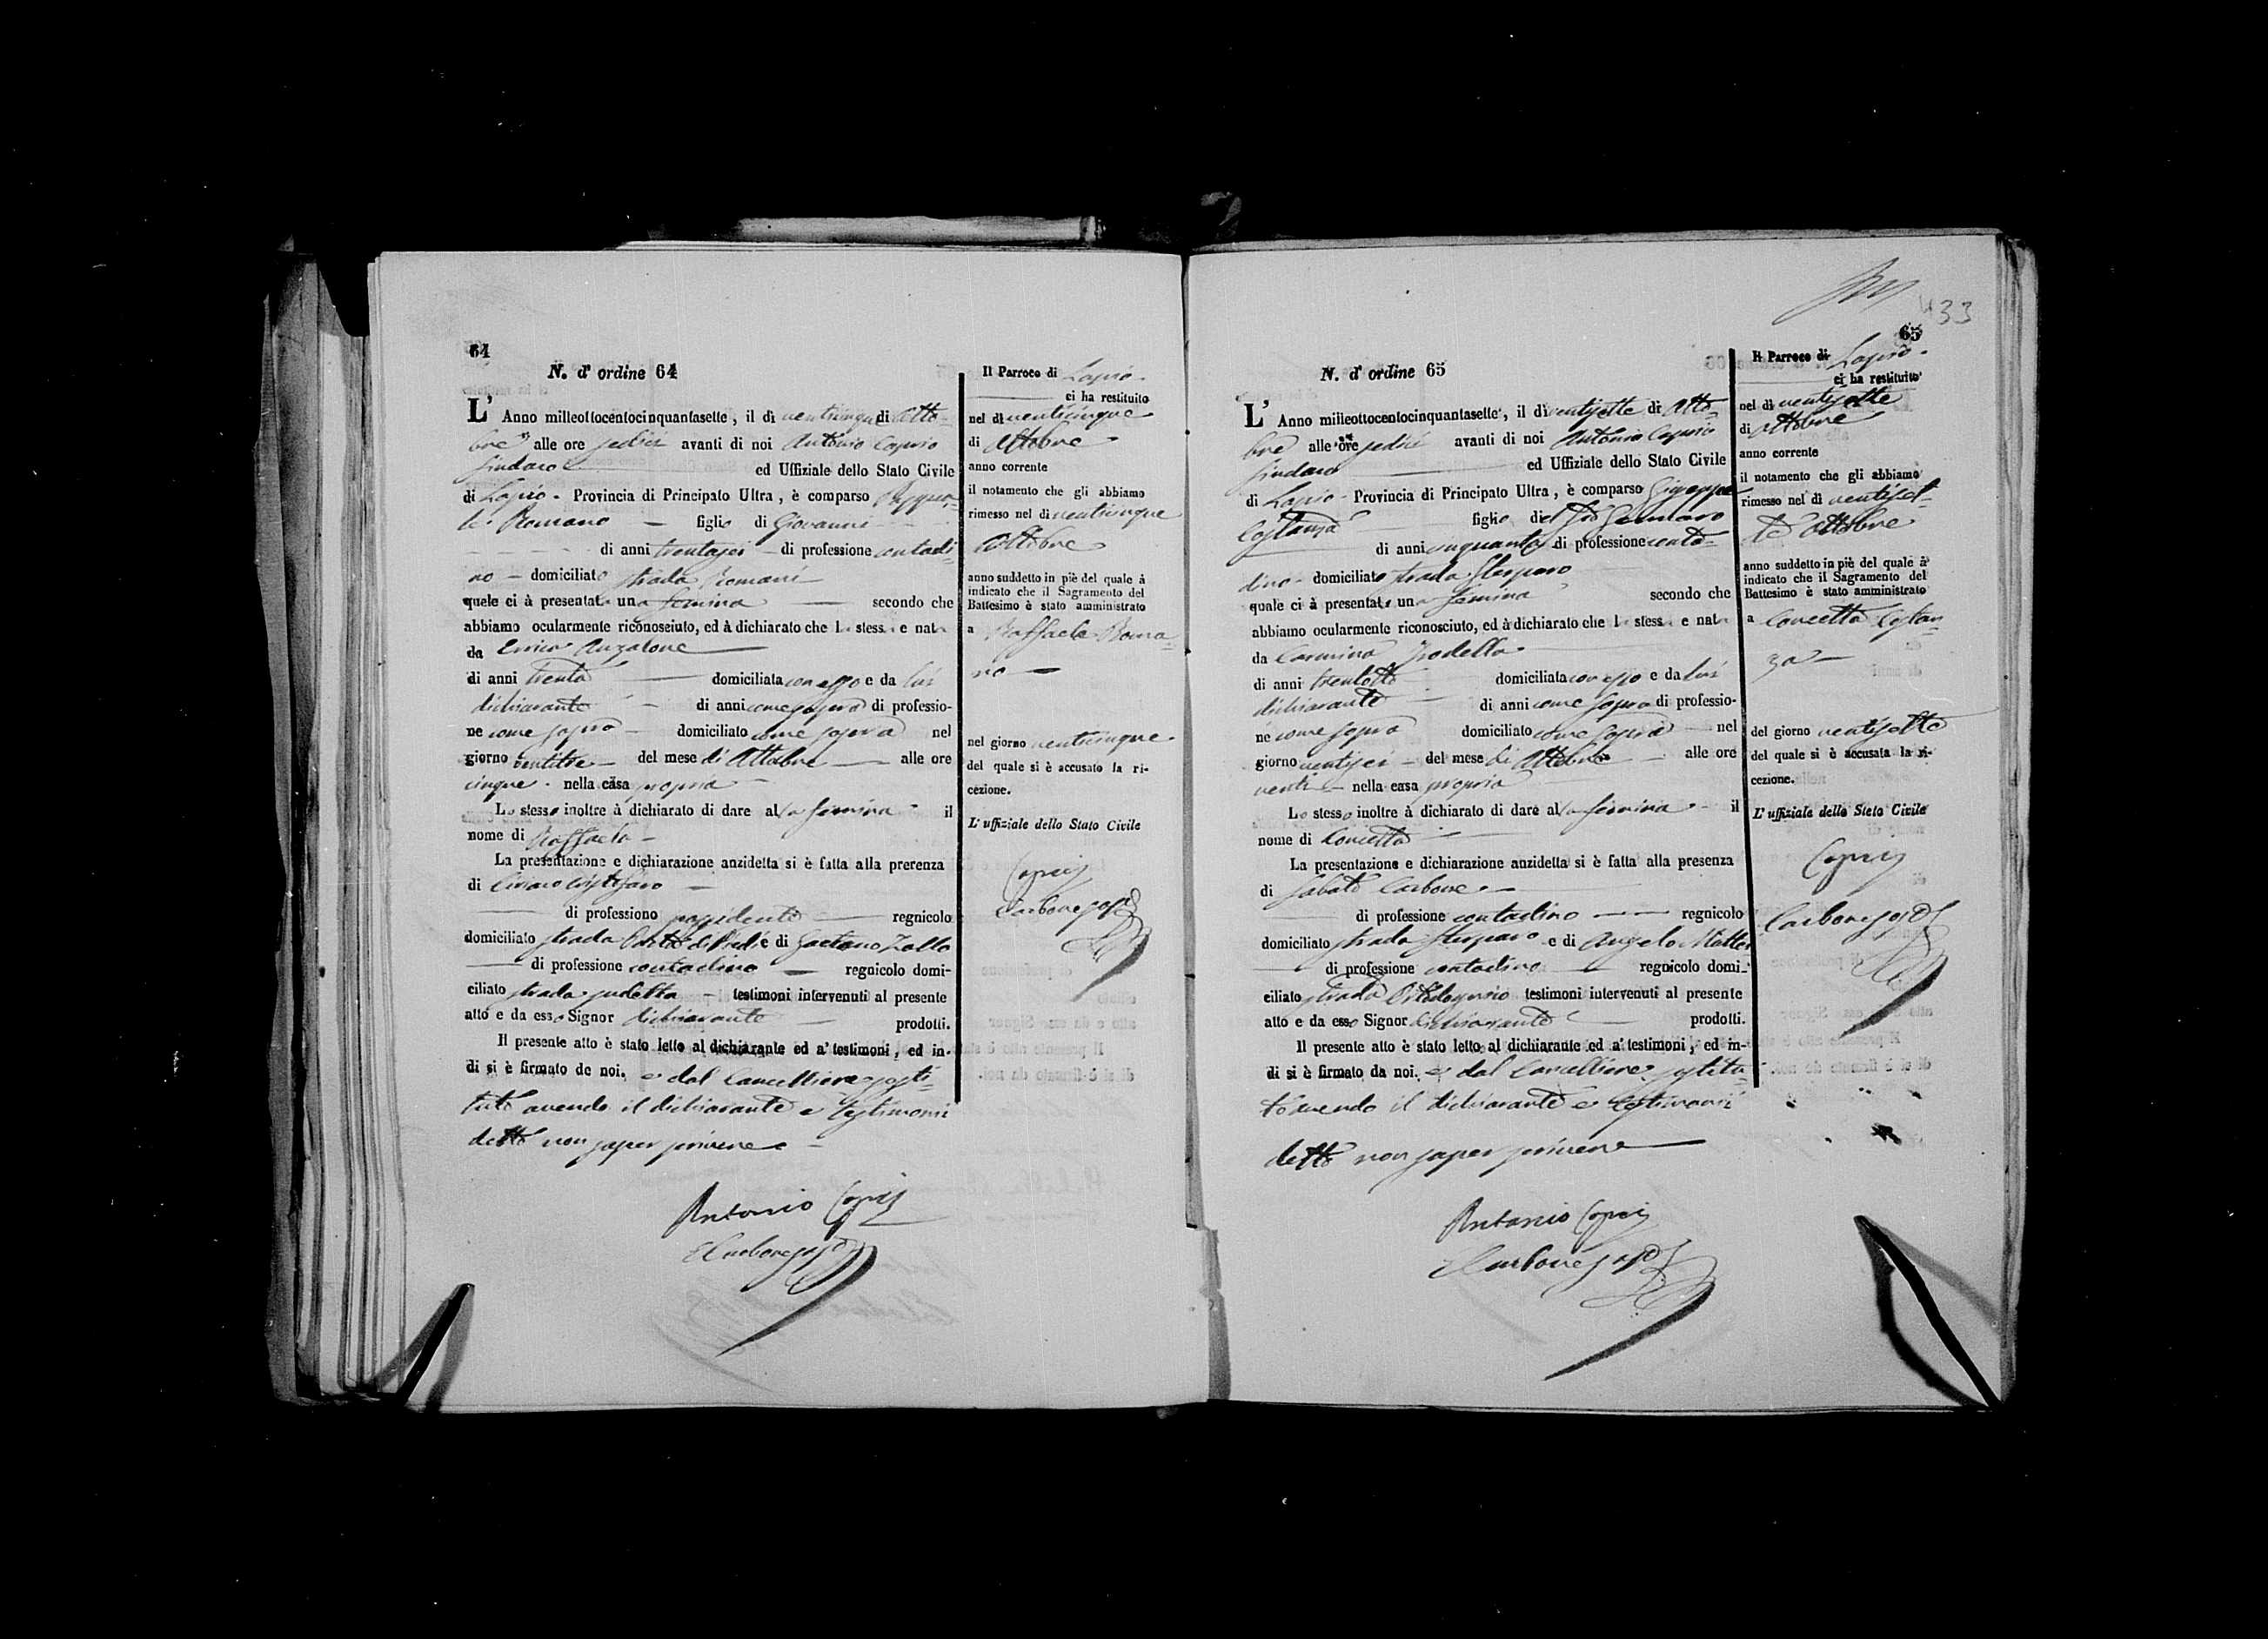 64
N. d' ordine 64
L' Anno milleottocentocinquantasette, il dì venticinque di Otto-
bre alle ore sedici avanti di noi Antonio Caprio
Sindaco ed Uffiziale dello Stato Civile
di Lapio - Provincia di Principato Ultra, è comparso
Romano — figlio di Giovanni
di anni trentasei — di professione contadi
no — domiciliato strada Romani
quale ci à presentata una femina — secondo che
abbiamo ocularmente riconosciuto, ed à dichiarato che la stessa e nata
da Anzalone
di anni trenta — domiciliata con esso e da lui
dichiarante — di anni come sopra di professio-
ne come sopra — domiciliato come sopra nel
giorno ventitre — del mese di Ottobre — alle ore
cinque - nella casa propria
Lo stesso inoltre à dichiarato di dare alla femina - il
nome di Raffaela -
La presentazione e dichiarazione anzidetta si è fatta alla prerenza
di Ciriaco Cristofaro —
— di professiono possidente — regnicolo
domiciliato strada e di Gaetano Zollo
— di professione contadino — regnicolo domi-
ciliato strada — testimoni intervenuti al presente
atto e da esso Signor dichiarante — prodotti.
Il presente atto è stato letto al dichiarante ed a' testimoni, ed in-
di si è firmato de noi. e dal Cancelliere sosti-
tuto avendo il dichiarante e testimonii
detto non saper scrivere -
Antonio Caprio
Carbone sosto
Il Parroco di Lapio -
ci ha restituito
nel dì venticinque
di Ottobre
anno corrente
il notamento che gli abbiamo
rimesso nel dì venticinque
Ottobre
anno suddetto in piè del quale à
indicato che il Sagramento del
Battesimo è stato amministrato
a Raffaela Roma-
no —
nel giorno venticinque
del quale si è accusato la ri-
cezione.
L' uffiziale dello Stato Civile
Caprio
Carbone sosto
433
65
N. d' ordine 65
L' Anno milleottocentocinquantasette, il dì ventisette di Otto-
bre alle ore sedici avanti di noi Antonio Caprio
Sindaco ed Uffiziale dello Stato Civile
di Lapio - Provincia di Principato Ultra, è comparso Giuseppe
Costanza figlio del fu Gennaro
di anni cinquanta di professione conta-
dino - domiciliato strada Sterparo
quale ci à presentata una femina secondo che
abbiamo ocularmente riconosciuto, ed à dichiarato che la stessa e nata
da Carmina
di anni trentotto domiciliata con esso e da lui
dichiarante di anni come sopra di professio-
ne come sopra domiciliato come sopra — nel
giorno ventisei — del mese di Ottobre — alle ore
venti — nella casa propria
Lo stesso inoltre à dichiarato di dare alla femina - il
nome di Concetta
La presentazione e dichiarazione anzidetta si è fatta alla presenza
di Sabato Carbone —
di professione contadino — regnicolo
domiciliato strada Sterparo e di Angelo
— di professione contadino — regnicolo domi-
ciliato strada testimoni intervenuti al presente
atto e da esso Signor dichiarante — prodotti.
Il presente atto è stato letto al dichiarante ed a' testimoni, ed in-
di si è firmato da noi. e dal Cancelliere sostitu-
to avendo il dichiarante e testimonii
detto non saper scrivere
Antonio Caprio
Carbone sosto
Il Parroco di Lapio -
ci ha restituito
nel dì ventisette
di Ottobre
anno corrente
il notamento che gli abbiamo
rimesso nel dì ventiset-
te Ottobre
anno suddetto in piè del quale à
indicato che il Sagramento del
Battesimo è stato amministrato
a Concetta Costan-
za —
del giorno ventisette
del quale si è accusata la ri-
cezione.
L' uffiziale dello Stato Civile
Caprio
Carbone sosto